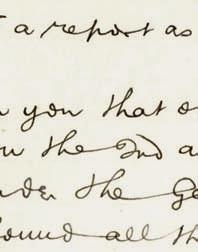 a report as
you that
the 2nd a
the Ge
ound all th